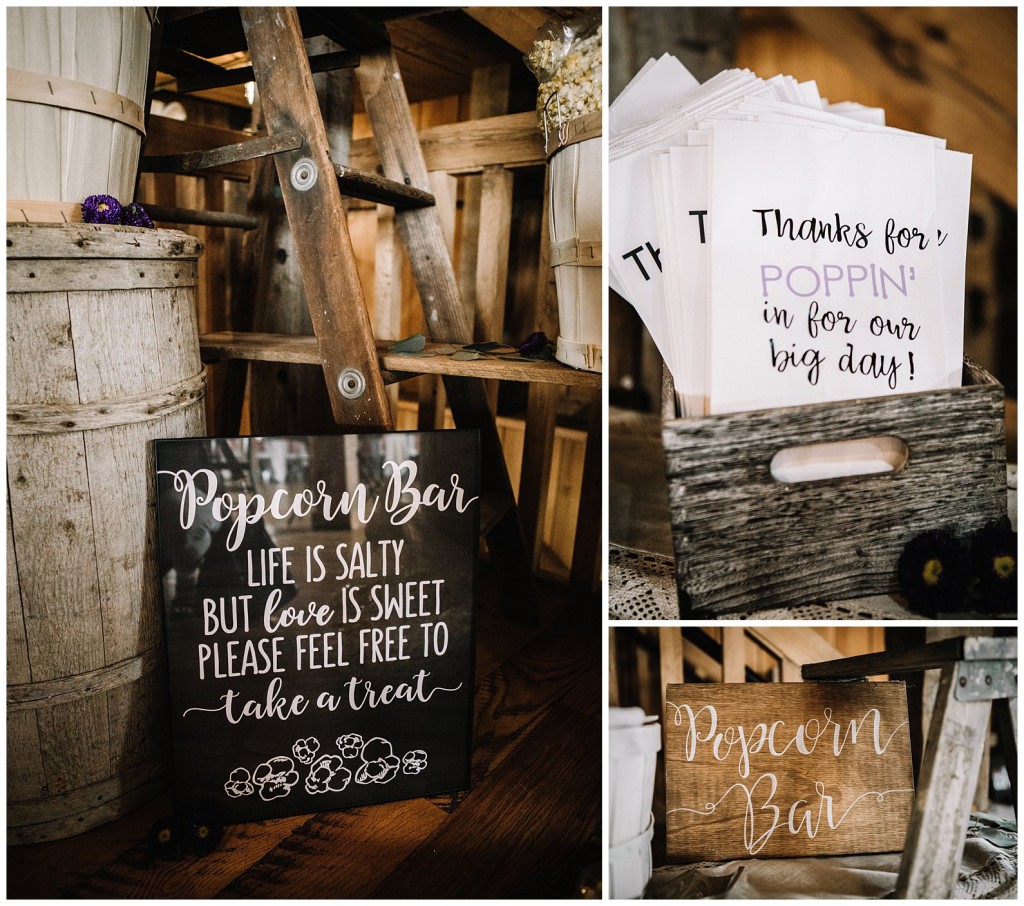 Popcorn Bar
LIFE IS SALTY
BUT love IS SWEET
PLEASE FEEL FREE TO
take a treat
Thanks for
POPPIN'
in for our
big day!
Th
T
Popcorn
Bar